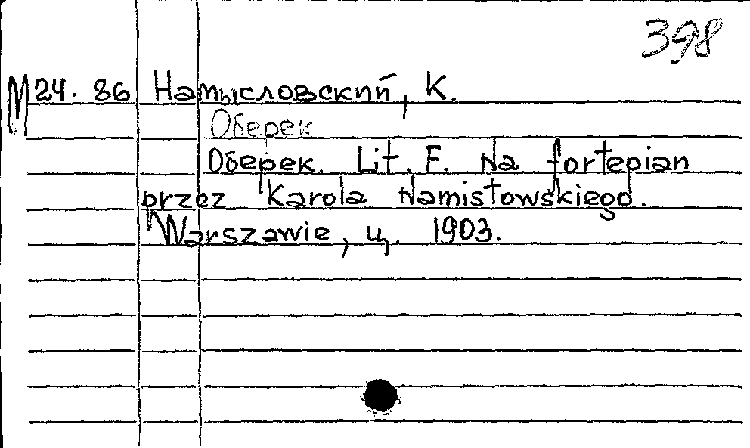 398
М 24. 86 Намысловский, К.
Оберек
Оберек. Lit. F. Na fortepian
przez Karola Namistowskiego.
Warszawie, ц. 1903.